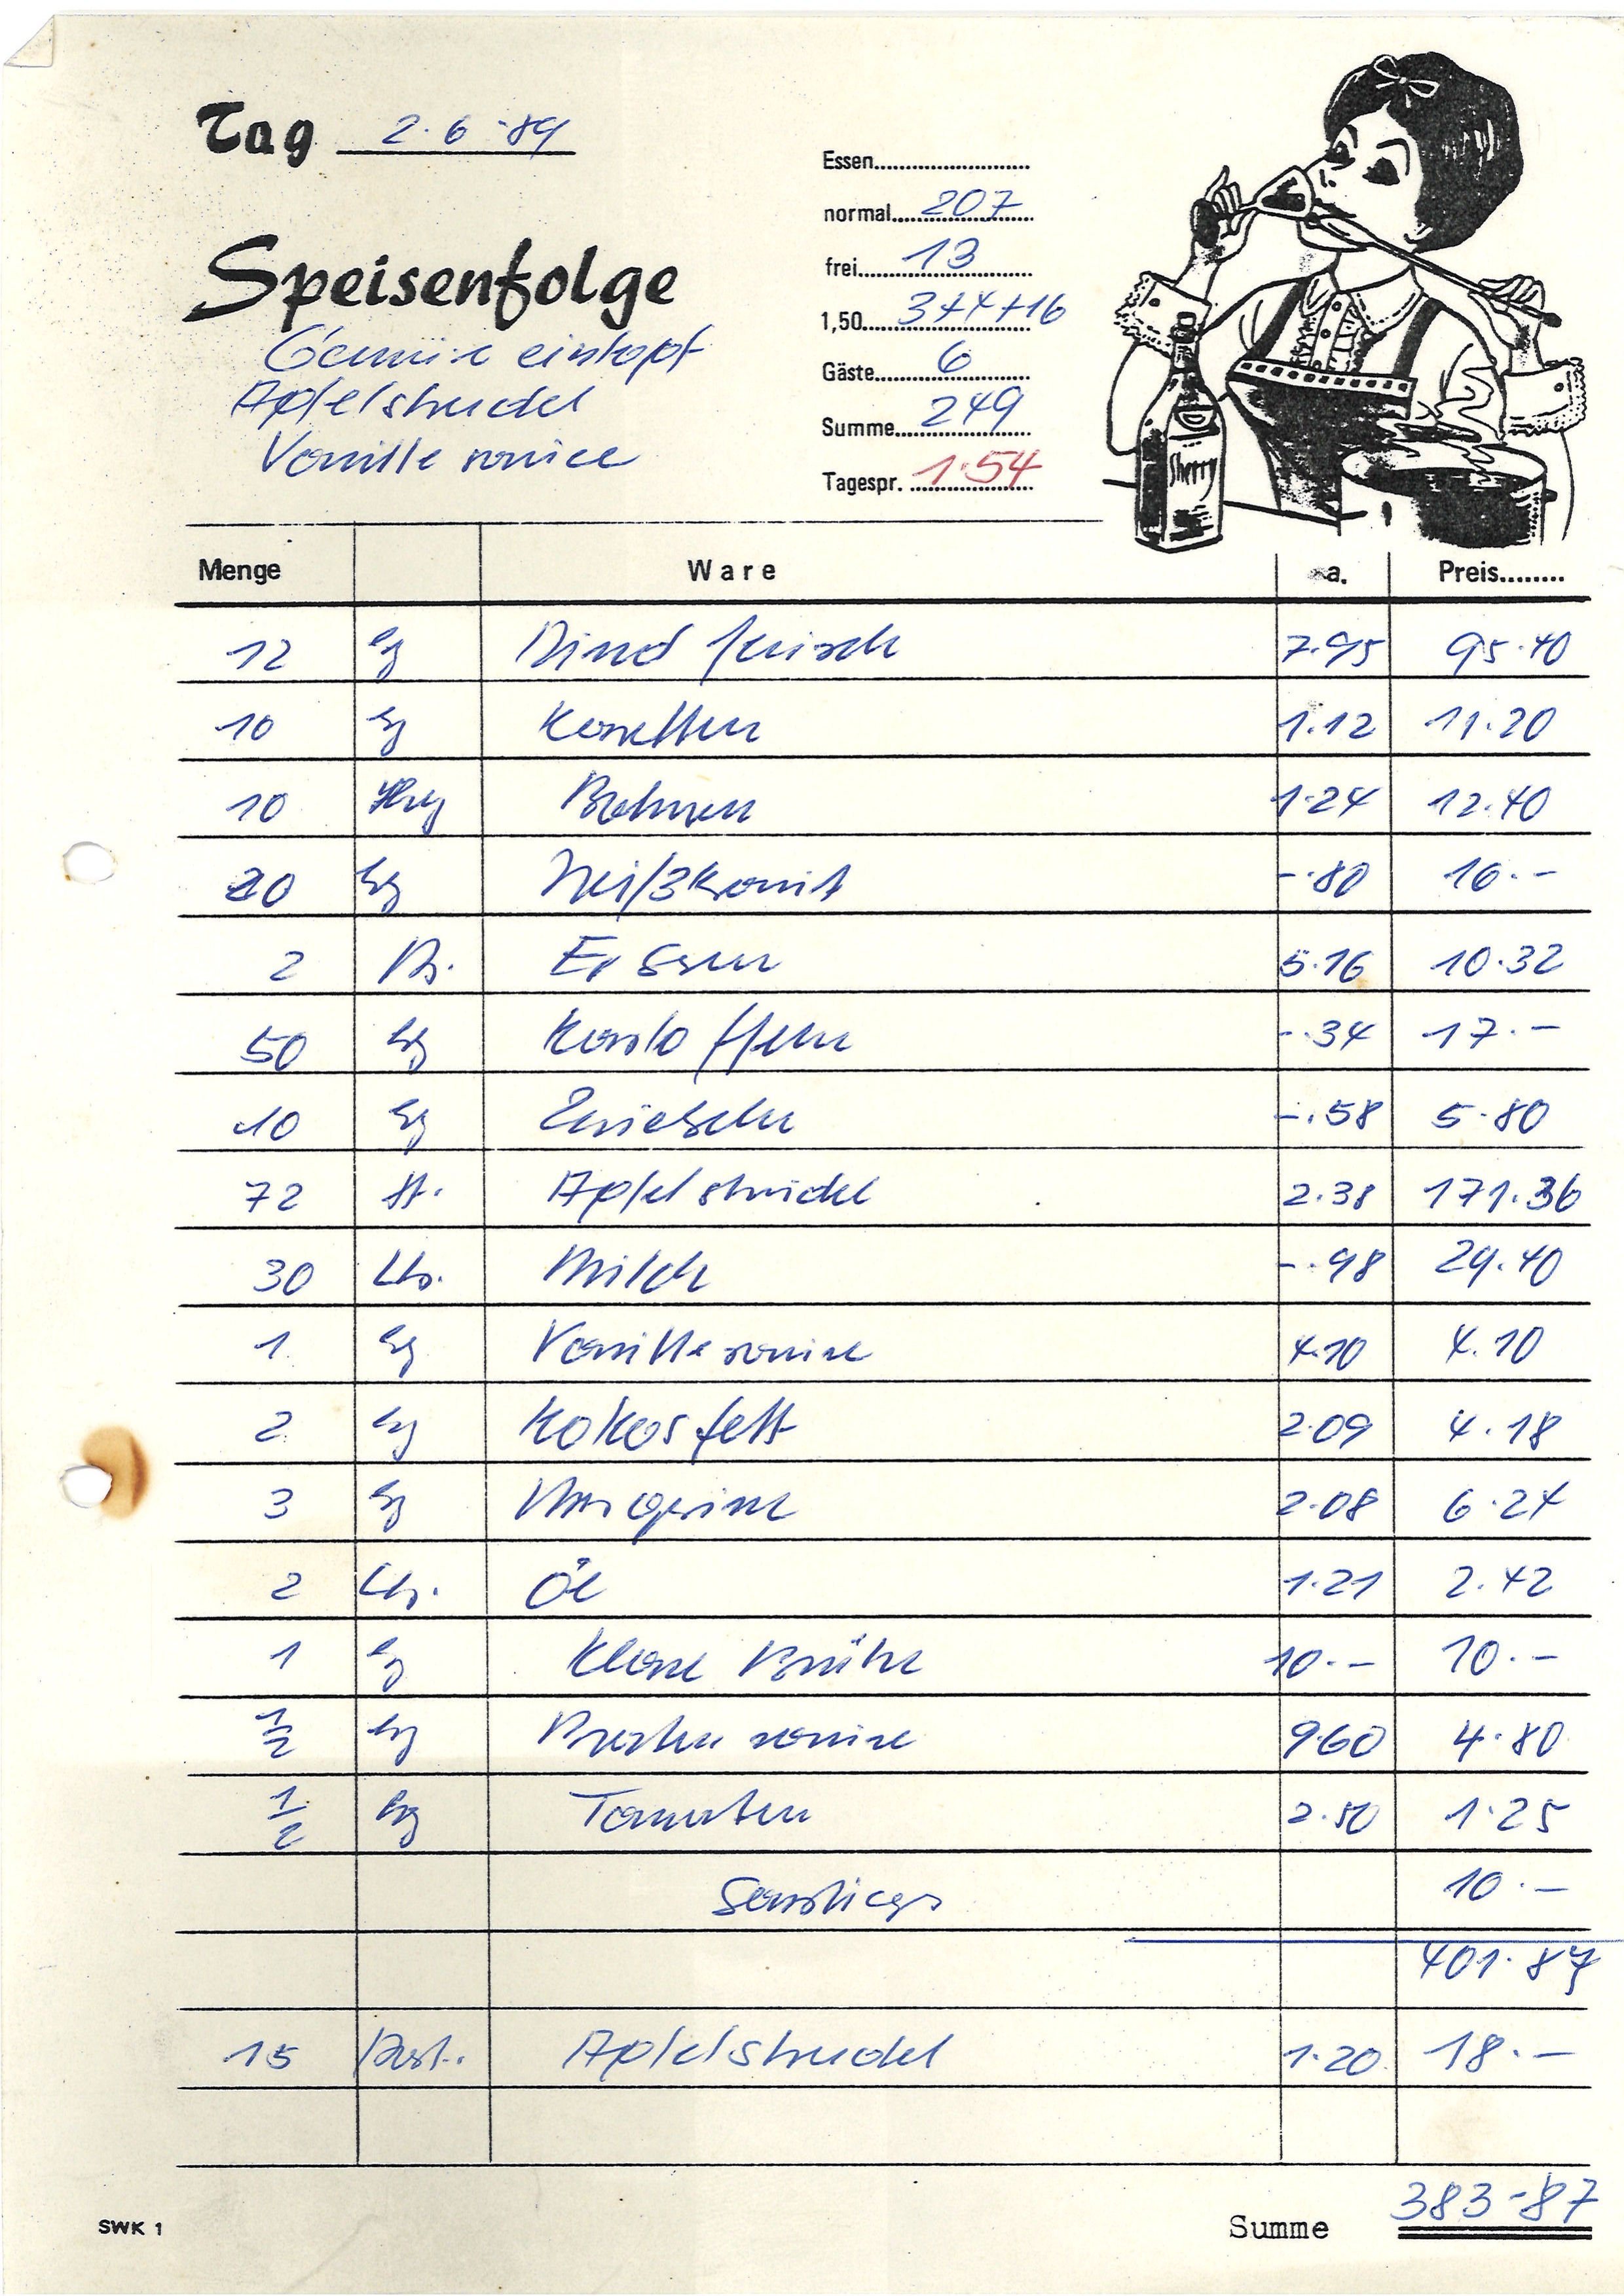 Tag 2.6.89
Essen
normal 207
frei 13
1,50 3+4+16
Gäste 6
Summe 249
Tagespr. 1.54
Speisenfolge
Gemüse eintopf
Apfelstrudel
Vanille sauce
Sherry
Menge Ware a. Preis
12 kg Rindfleisch 7.95 95.40
10 kg Karotten 1.12 11.20
10 kg Bohnen 1.24 12.40
20 kg Weißkraut -.80 16.-
2 Ds. Erbsen 5.16 10.32
50 kg Kartoffeln -.34 17.-
10 kg Zwiebeln -.58 5.80
72 St. Apfelstrudel 2.38 171.36
30 Ltr. Milch -.98 29.40
1 kg Vanillesauce 4.10 4.10
2 kg Kokosfett 2.09 4.18
3 kg Margarine 2.08 6.24
2 Ltr. Öl 1.21 2.42
1 kg Klare Brühe 10.- 10.-
1/2 kg Bratensauce 9.60 4.80
1/2 kg Tomaten 2.50 1.25
Sonstiges 10.-
401.87
15 Port. Apfelstrudel 1.20 18.-
SWK 1
Summe 383-87